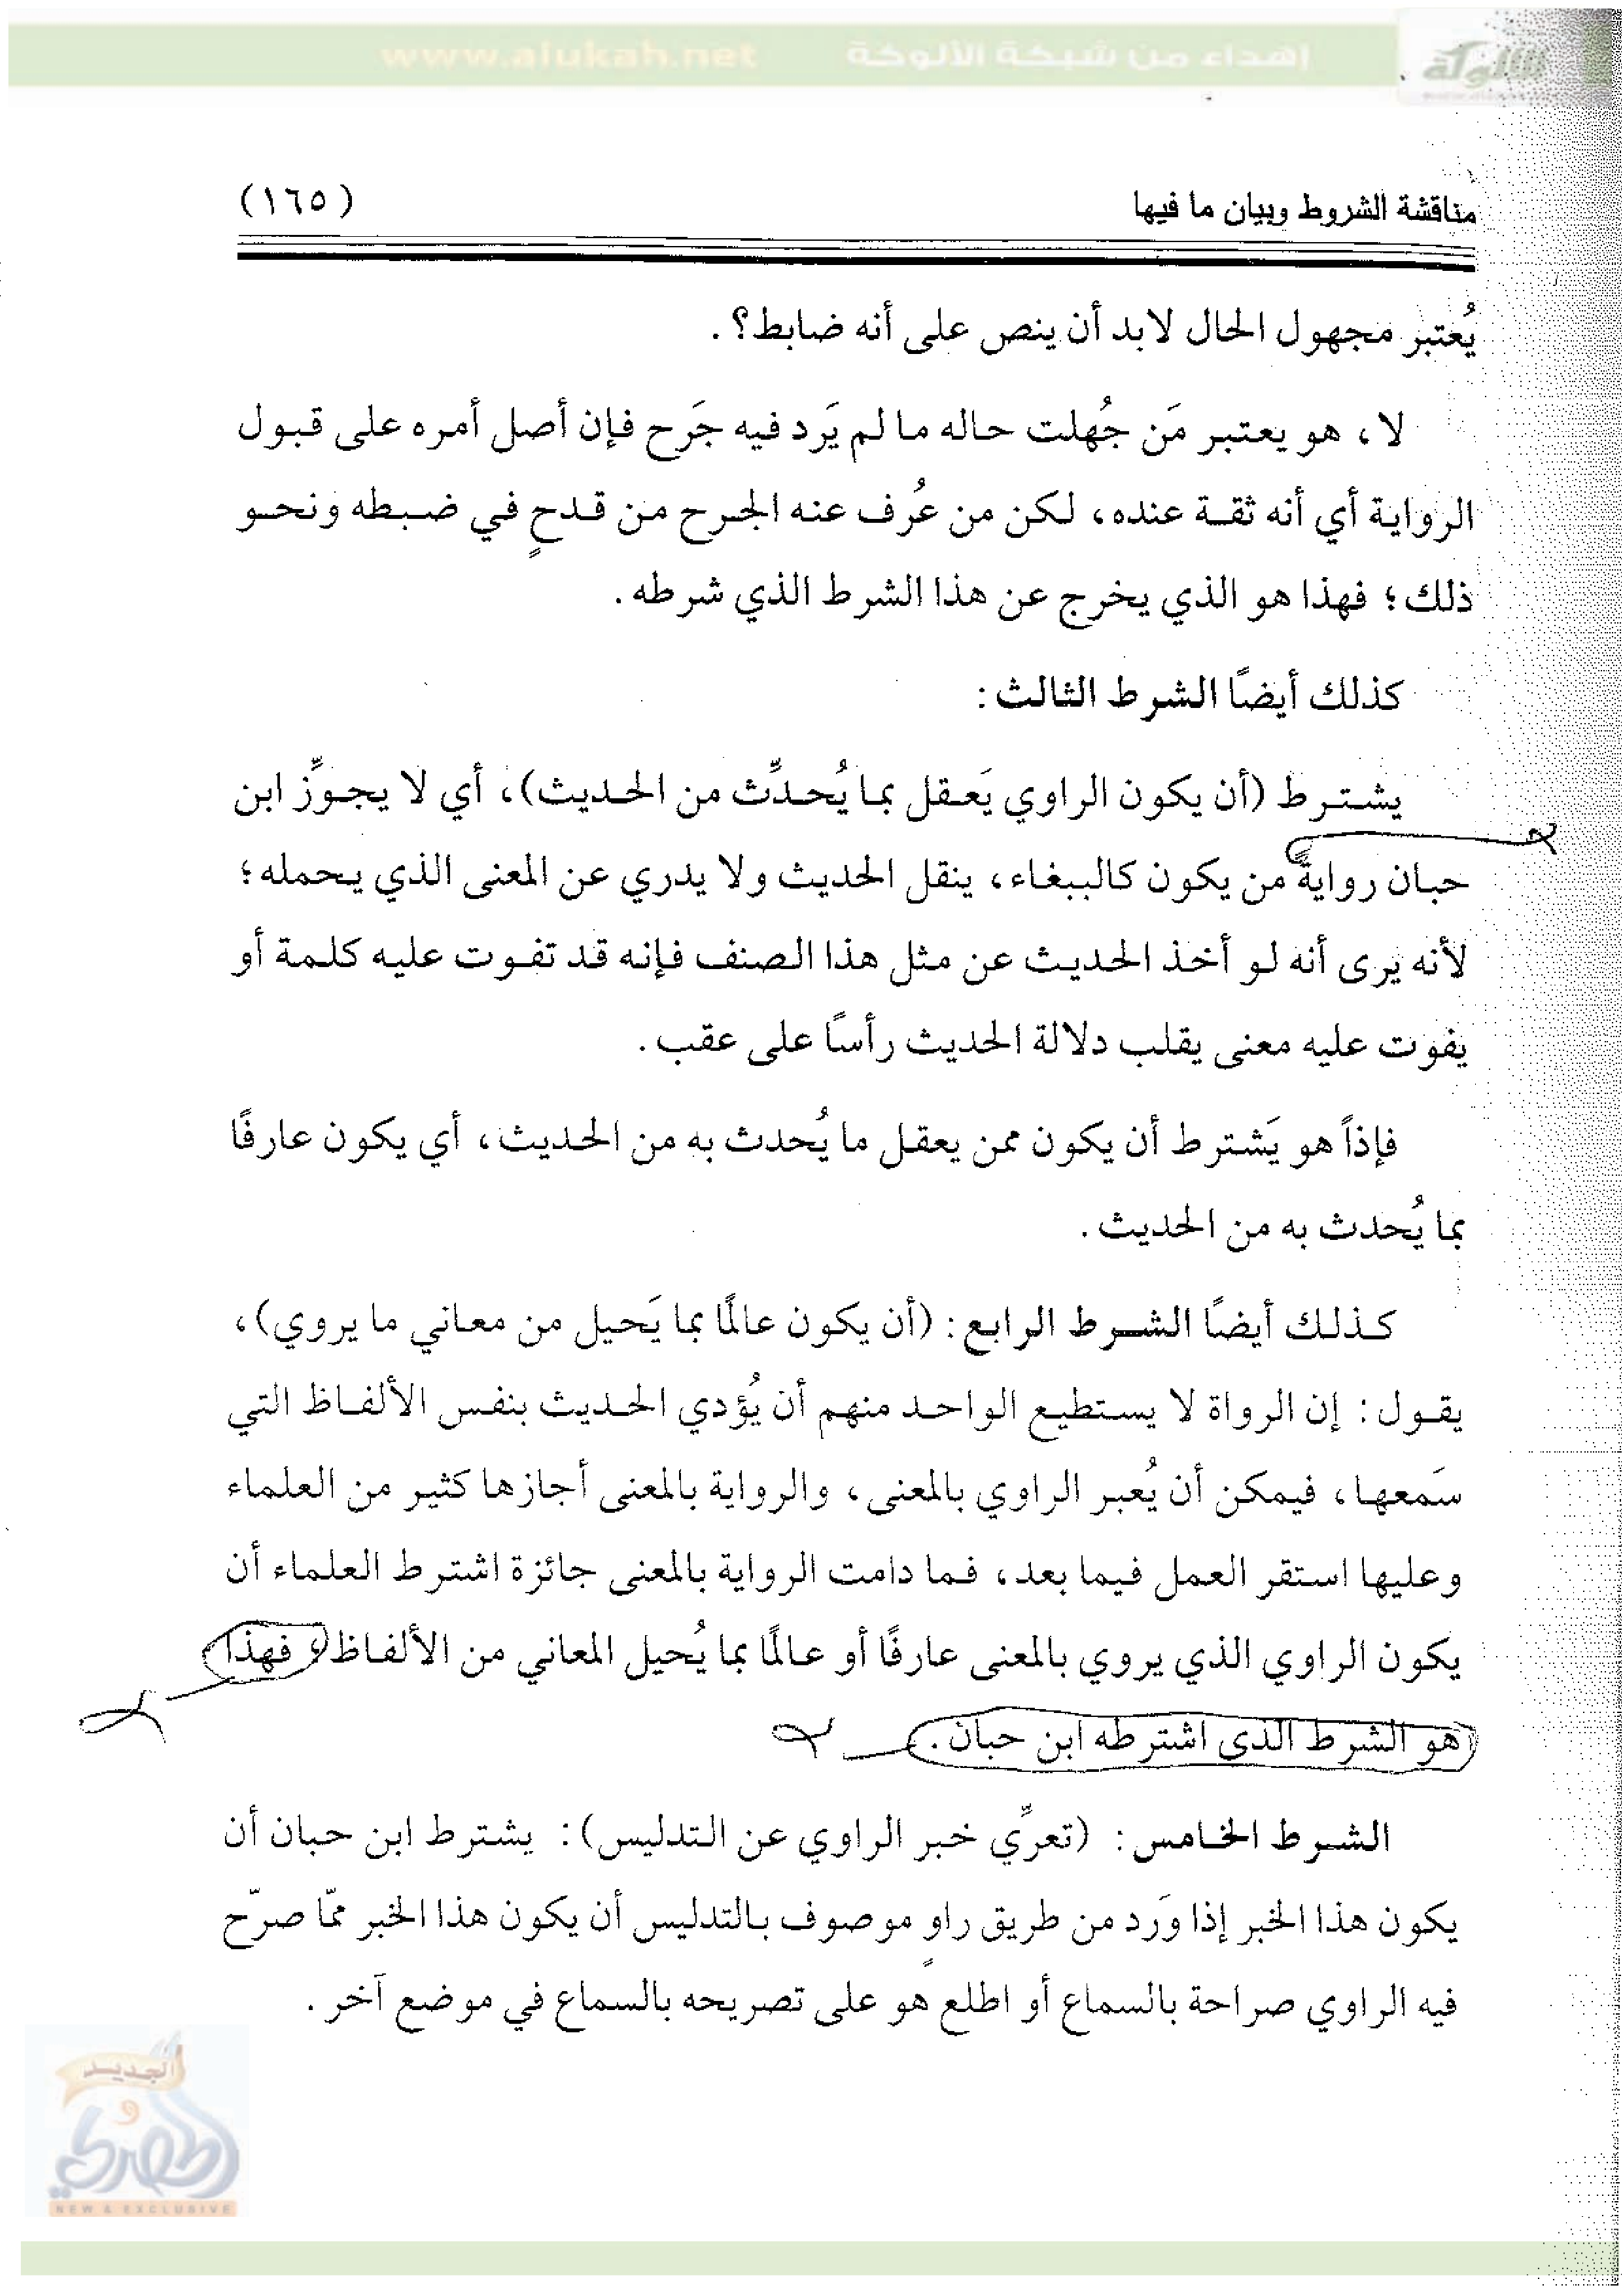 www.alukah.net إهداء من شبكة الألوكة
مناقشة الشروط وبيان ما فيها (١٦٥)
يُعتبر مجهول الحال لابد أن ينص على أنه ضابط؟ .
لا، هو يعتبر مَن جُهلت حاله ما لم يَرد فيه جَرح فإن أصل أمره على قبول
الرواية أي أنه ثقة عنده، لكن من عُرف عنه الجرح من قدحٍ في ضبطه ونحو
ذلك؛ فهذا هو الذي يخرج عن هذا الشرط الذي شرطه.
كذلك أيضًا الشرط الثالث:
يشترط (أن يكون الراوي يَعقل بما يُحدِّث من الحديث)، أي لا يجوِّز ابن
حبان روايةً من يكون كالببغاء، ينقل الحديث ولا يدري عن المعنى الذي يحمله؛
لأنه يرى أنه لو أخذ الحديث عن مثل هذا الصنف فإنه قد تفوت عليه كلمة أو
يفوت عليه معنى يقلب دلالة الحديث رأسًا على عقب.
فإذاً هو يَشترط أن يكون ممن يعقل ما يُحدث به من الحديث، أي يكون عارفًا
بما يُحدث به من الحديث.
كذلك أيضًا الشرط الرابع: (أن يكون عالمًا بما يَحيل من معاني ما يروي)،
يقول: إن الرواة لا يستطيع الواحد منهم أن يُؤدي الحديث بنفس الألفاظ التي
سَمعها، فيمكن أن يُعبر الراوي بالمعنى، والرواية بالمعنى أجازها كثير من العلماء
وعليها استقر العمل فيما بعد، فما دامت الرواية بالمعنى جائزة اشترط العلماء أن
يكون الراوي الذي يروي بالمعنى عارفًا أو عالمًا بما يُحيل المعاني من الألفاظ، فهذا
هو الشرط الذى اشترطه ابن حبان.
الشرط الخامس: (تعرِّي خبر الراوي عن التدليس): يشترط ابن حبان أن
يكون هذا الخبر إذا وَرد من طريق راوٍ موصوف بالتدليس أن يكون هذا الخبر ممّا صرّح
فيه الراوي صراحة بالسماع أو اطلع هو على تصريحه بالسماع في موضع آخر.
الجديد
و
NEW & EXCLUSIVE